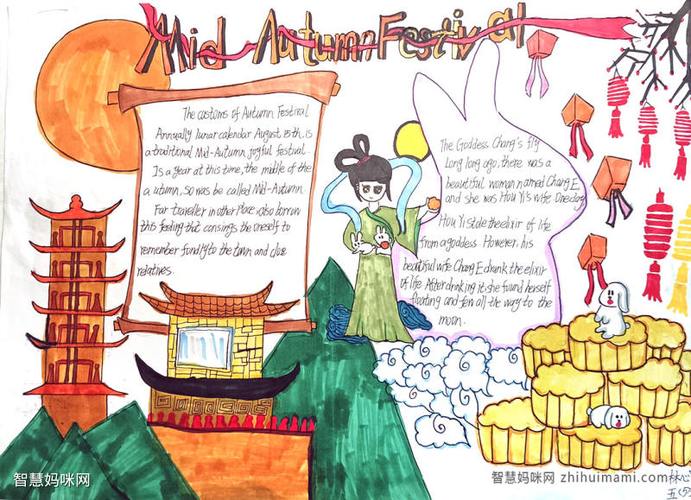 Mid Autumn Festival
The customs of Autumn Festival
Annually lunar calendar August 15th, is
a traditional Mid-Autumn joyful festival
Is a year at this time, the middle of the
a utumn, so was be called Mid-Autumn.
Far traveller in other Place also borrow
this feeling that consings the oneself to
remember fundly to the town and clue
relatives
The Goddess Chang's fly
Long long ago, there was a
beautiful woman named Chang E
and she was Hou Yi's wife. One day
Hou Yi stole the elixir of life
from a goddess. However, his
beautiful wife Chang E drank the elixir
of life. After drinking it, she found herself
floating and fen all the way to the
moon.
智慧妈咪网
智慧妈咪网 zhihuimami.com
林心
五(4)